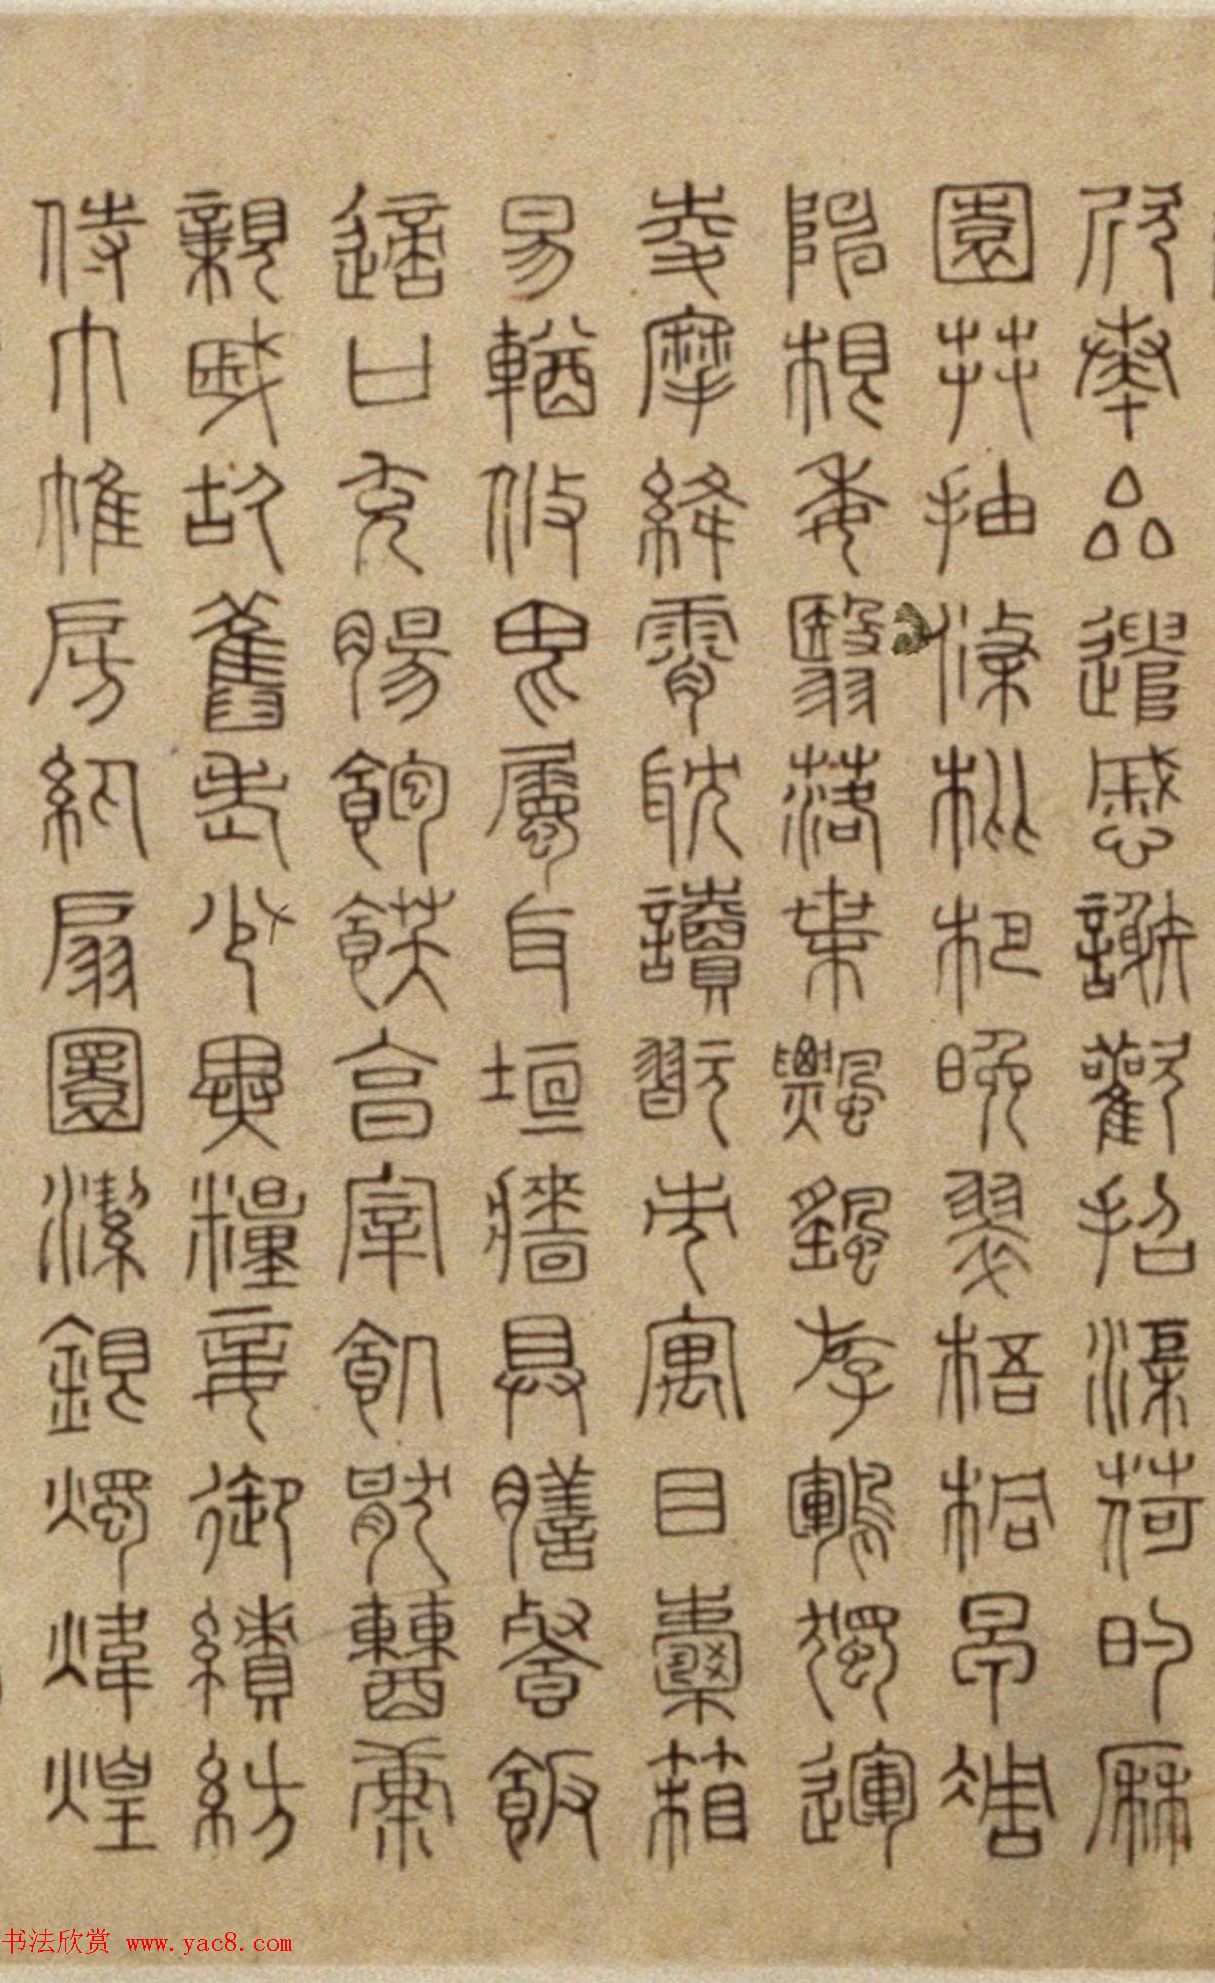 欣奏累遣慼謝歡招渠荷的歷
園莽抽條枇杷晚翠梧桐早凋
陳根委翳落葉飄颻游鵾獨運
凌摩絳霄耽讀翫市寓目囊箱
易輶攸畏屬耳垣牆具膳餐飯
適口充腸飽飫亨宰飢厭糟糠
親戚故舊老少異糧妾御績紡
侍巾帷房紈扇圓潔銀燭煒煌
书法欣赏 www.yac8.com